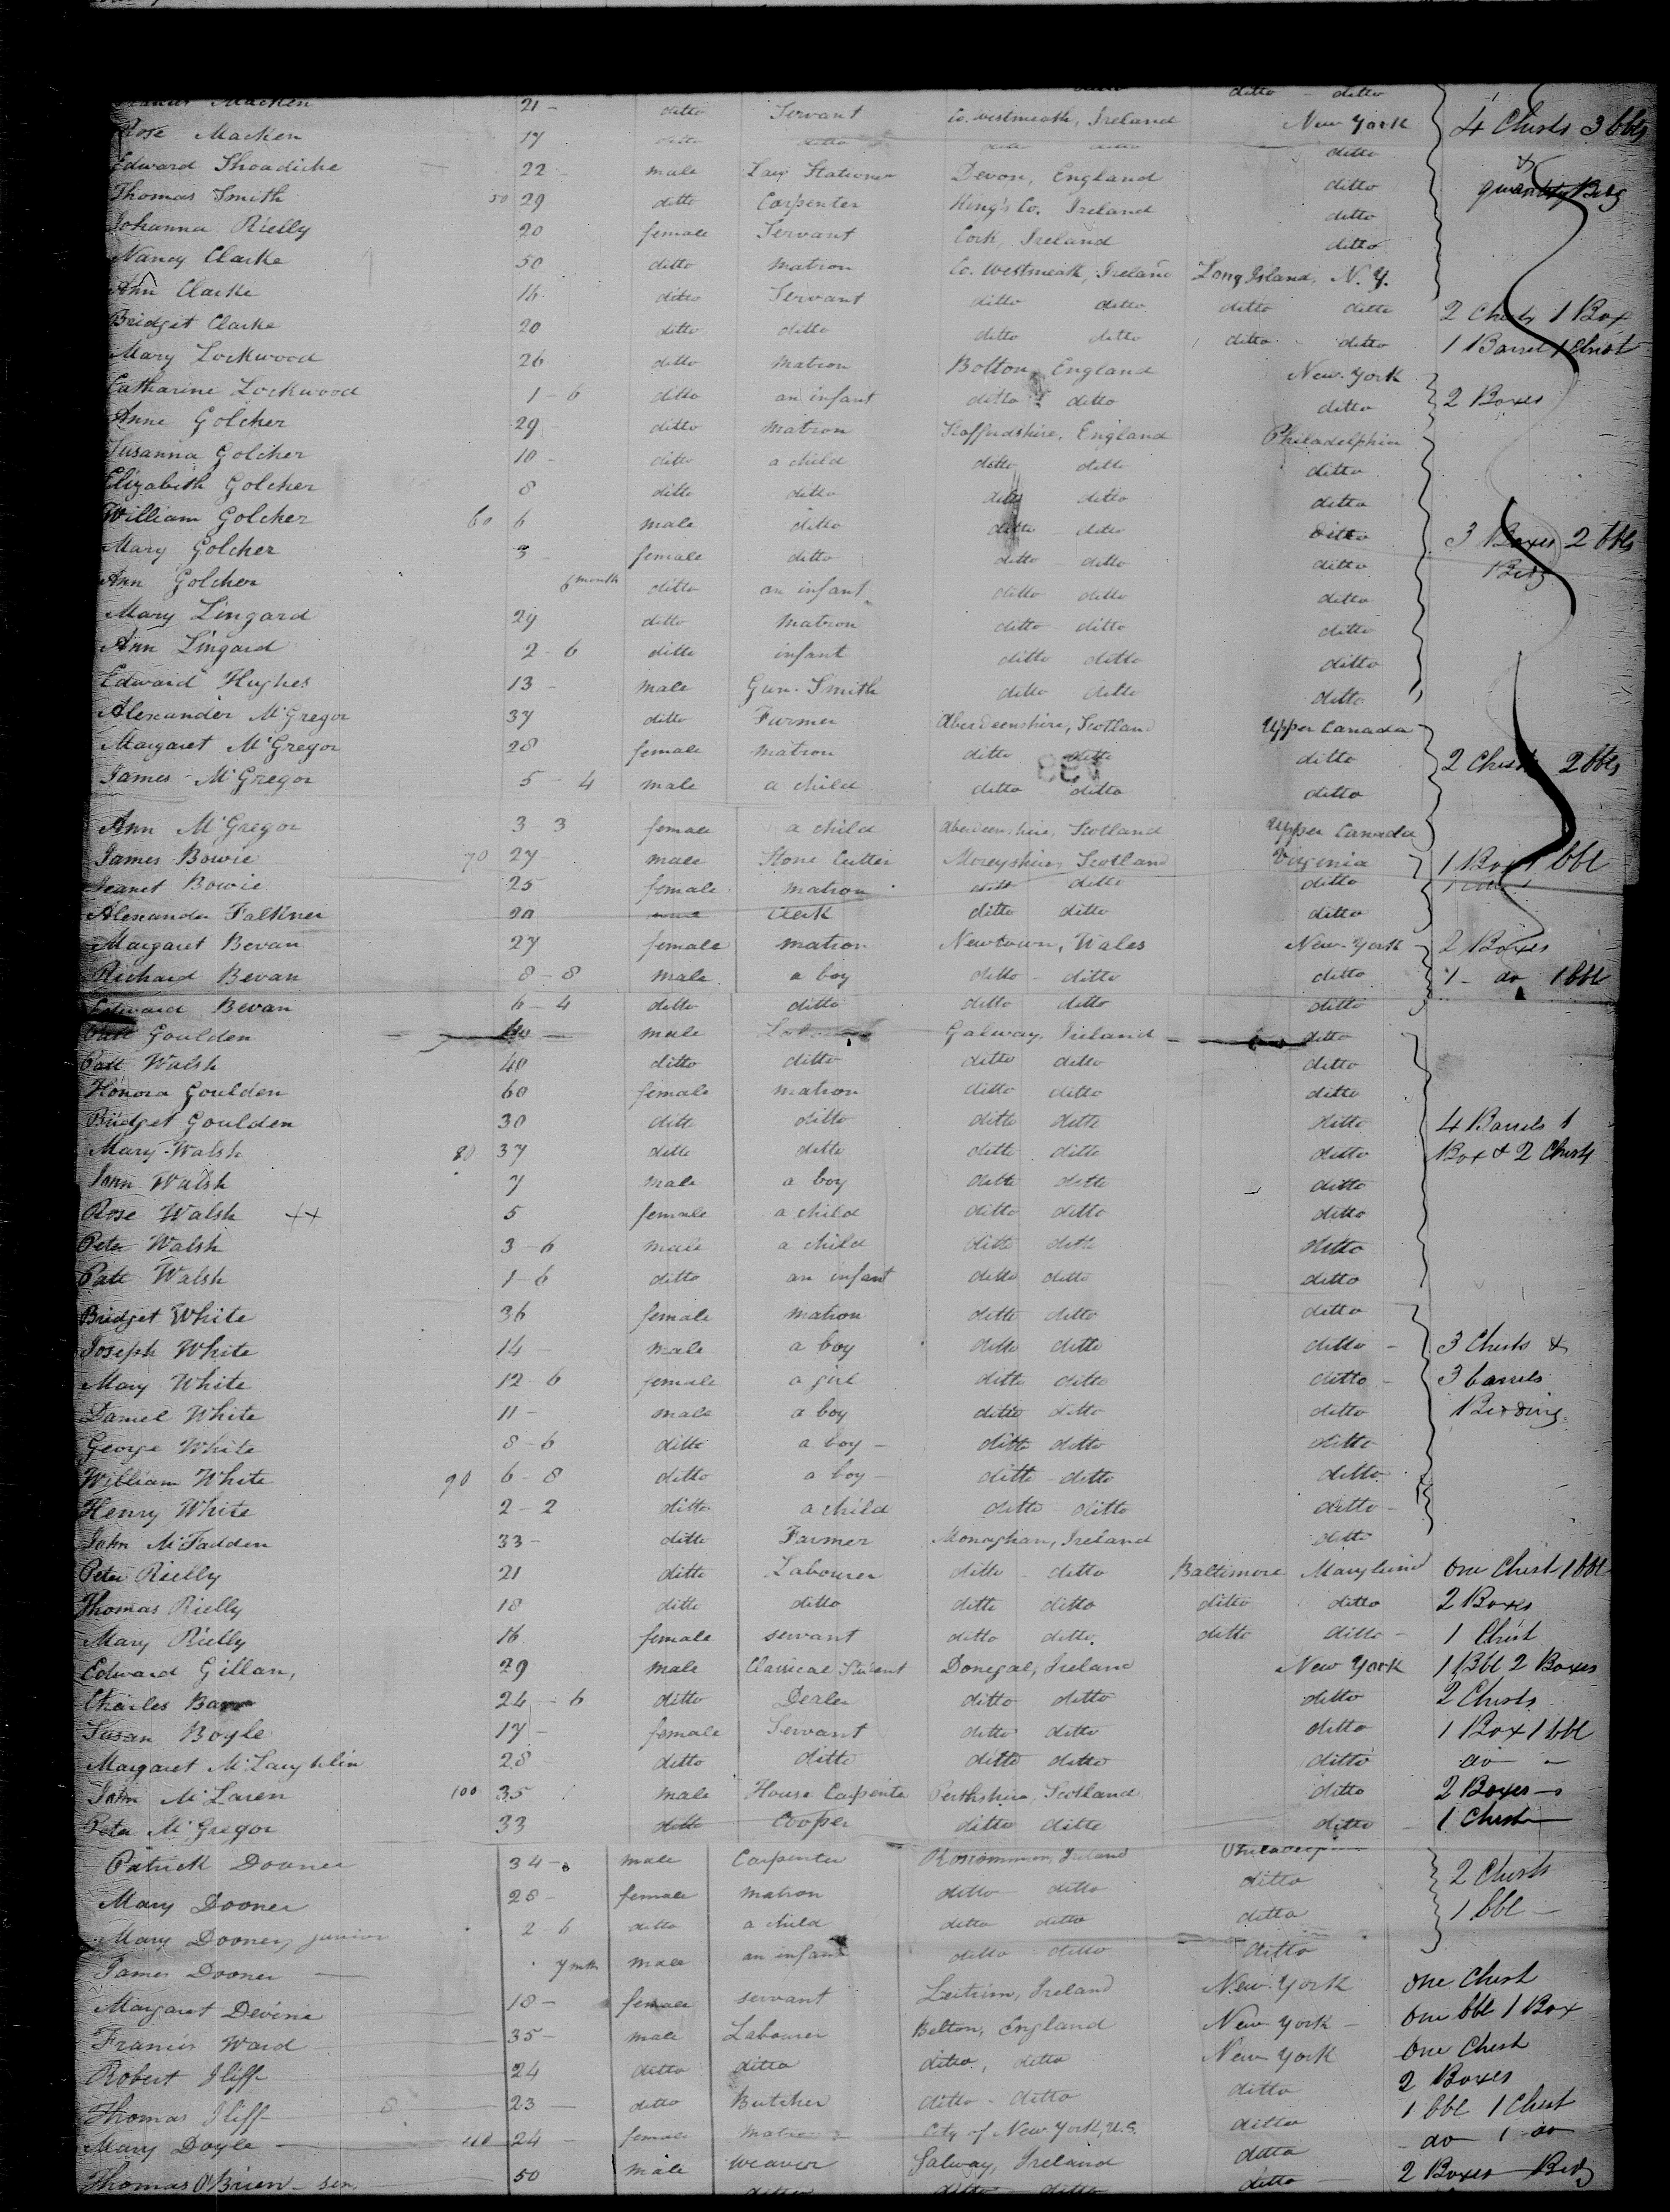 ditto ditto
Macken 21 - ditto Servant Co. Westmeath, Ireland New York 4 Chests 3 bbls
Rose Macken 17 ditto ditto ditto ditto ditto &
Edward Shoadiche 22 - male Law Stationer Devon, England ditto quantity Bedg
Thomas Smith 50 29 ditto Carpenter King's Co. Ireland ditto
Johanna Rielly 20 female Servant Cork, Ireland ditto
Nancy Clarke 50 ditto Matron Co. Westmeath, Ireland Long Island, N.Y.
Ann Clarke 16 ditto Servant ditto ditto ditto ditto 2 Chests 1 Box
Bridget Clarke 20 ditto ditto ditto ditto ditto ditto 1 Barrel 1 Chest
Mary Lockwood 26 ditto Matron Bolton, England New York
Catharine Lockwood 1-6 ditto an infant ditto ditto ditto 2 Boxes
Anne Golcher 29 ditto Matron Staffordshire, England Philadelphia
Susanna Golcher 10 - ditto a child ditto ditto ditto
Elizabeth Golcher 8 ditto ditto ditto ditto ditto
William Golcher 60 6 male ditto ditto ditto ditto 3 Boxes 2 bbls
Mary Golcher 3 - female ditto ditto ditto ditto Bedg
Ann Golcher 6 month ditto an infant ditto ditto ditto
Mary Lingard 29 ditto Matron ditto ditto ditto
Ann Lingard 2-6 ditto infant ditto ditto ditto
Edward Hughes 13 - male Gun-Smith ditto ditto ditto
Alexander McGregor 37 ditto Farmer Aberdeenshire, Scotland Upper Canada
Margaret McGregor 28 female Matron ditto ditto ditto 2 Chests 2 bbls
James McGregor 5-4 male a child ditto ditto ditto
Ann McGregor 3 3 female a child Aberdeenshire, Scotland Upper Canada
James Bowie 70 27 male Stone Cutter Moreyshire, Scotland Virginia 1 Box 1 bbl
Jeanet Bowie 25 female matron ditto ditto ditto
Alexander Falkner 20 Clerk ditto ditto ditto
Margaret Bevan 27 female matron Newtown, Wales New York 2 Boxes
Richard Bevan 8-8 male a boy ditto ditto ditto 1 - do 1 bbl
Edward Bevan 6-4 ditto ditto ditto ditto ditto
Patt Goulden male Galway, Ireland ditto
Patt Walsh 40 ditto ditto ditto ditto ditto
Honora Goulden 60 female matron ditto ditto ditto
Bridget Goulden 30 ditto ditto ditto ditto ditto 4 Barrels 1
Mary Walsh 80 37 ditto ditto ditto ditto ditto Box & 2 Chests
John Walsh 7 male a boy ditto ditto ditto
Rose Walsh ++ 5 female a child ditto ditto ditto
Peter Walsh 3-6 male a child ditto ditto ditto
Patt Walsh 1-6 ditto an infant ditto ditto ditto
Bridget White 36 female matron ditto ditto ditto
Joseph White 14 - male a boy ditto ditto ditto - 3 Chests &
Mary White 12-6 female a girl ditto ditto ditto - 3 barrels
Daniel White 11 - male a boy ditto ditto ditto Bedding
George White 8-6 ditto a boy - ditto ditto ditto
William White 90 6-8 ditto a boy - ditto ditto ditto
Henry White 2-2 ditto a child ditto ditto ditto -
John McFadden 33 - ditto Farmer Monaghan, Ireland ditto
Peter Rielly 21 ditto Labourer ditto ditto Baltimore Maryland One Chest 1 bbl
Thomas Rielly 18 ditto ditto ditto ditto ditto ditto 2 Boxes
Mary Rielly 16 female servant ditto ditto ditto ditto - 1 Chest
Edward Gillan, 29 male Classical Student Donegal, Ireland New York 1 Bbl 2 Boxes
Charles Barr 24-6 ditto Dealer ditto ditto ditto 2 Chests
Susan Boyle 17 - female Servant ditto ditto ditto 1 Box 1 bbl
Margaret McLaughlin 28 ditto ditto ditto ditto ditto do -
John McLaren 100 35 male House Carpenter Perthshire, Scotland ditto 2 Boxes
Peter McGregor 33 ditto Cooper ditto ditto ditto 1 Chest
Patrick Dooner 34 - male Carpenter Roscommon, Ireland Philadelphia
Mary Dooner 28 - female matron ditto ditto ditto 2 Chests
Mary Dooner, junior 2-6 ditto a child ditto ditto ditto 1 bbl -
James Dooner 7 mths male an infant ditto ditto ditto
Margaret Devine 18 - female servant Leitrim, Ireland New York One Chest
Francis Ward 35 - male Labourer Bolton, England New York - One bbl 1 Box
Robert Iliff 24 ditto ditto ditto, ditto New York One Chest
Thomas Iliff 23 ditto Butcher ditto - ditto ditto 2 Boxes
Mary Doyle 110 24 female Matron City of New York, U.S. ditto 1 bbl 1 Chest
Thomas O'Brien - sen 50 male weaver Galway, Ireland ditto do 1 do
ditto ditto ditto ditto 2 Boxes Bedg